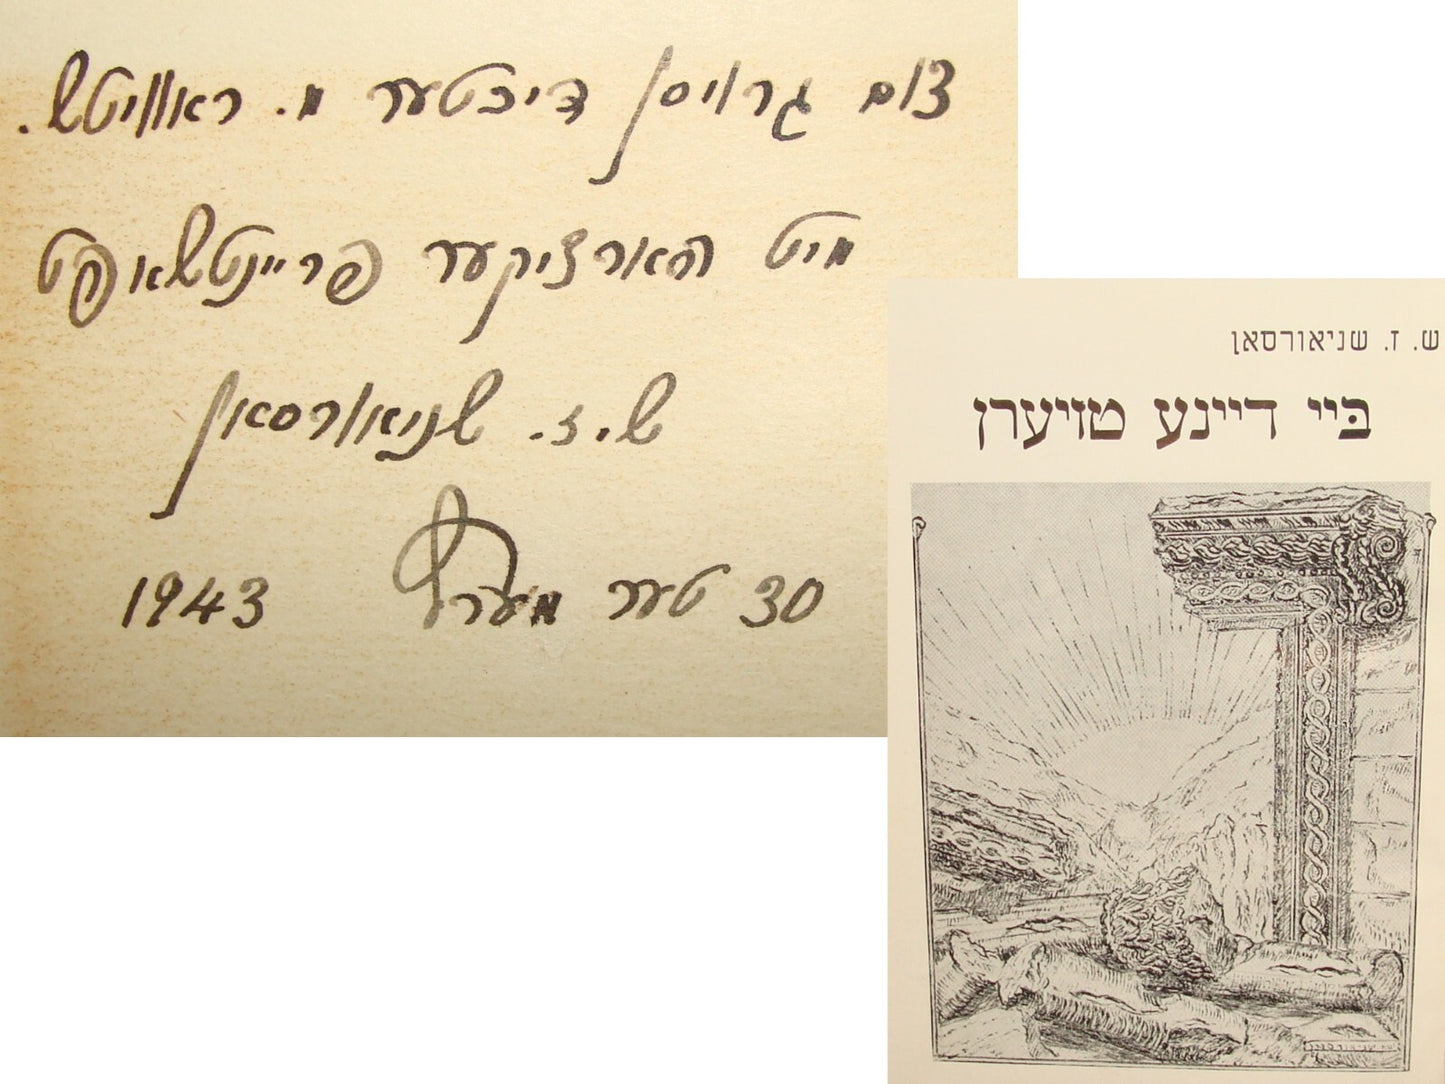 צום גרויסן דיכטער מ. ראוויטש.
מיט הארציקער פריינטשאפט
ש. ז. שניאורסאן
30 טער מערץ 1943
ש. ז. שניאורסאן
בײַ דיינע טויערן